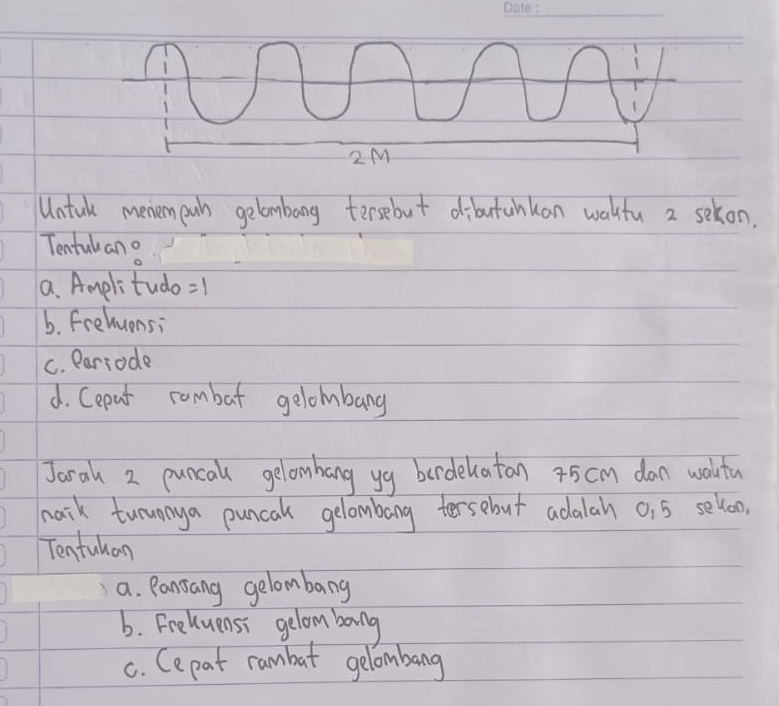 Date :
2 M
Untuk menempuh gelombang tersebut dibutuhkan waktu 2 sekon.
Tentukan :
a. Amplitudo = 1
b. Frekuensi
c. Periode
d. Cepat rambat gelombang
Jarak 2 puncak gelombang yg berdekatan 75 cm dan waktu
naik turunnya puncak gelombang tersebut adalah 0,5 sekon.
Tentukan
a. Pansang gelombang
b. Frekuensi gelombang
c. Cepat rambat gelombang